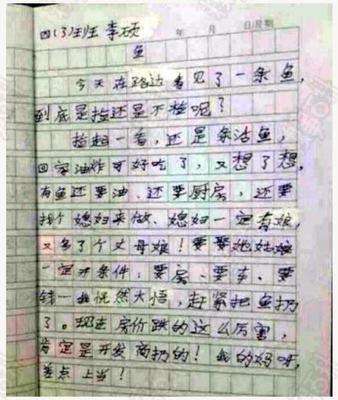 四(3)班 李硕
年 月 日 星期
鱼
今天在路边看见了一条鱼,
到底是捡还是不捡呢?
捡起一看,还是条活鱼,
回家油炸可好吃了,又想了想,
有鱼还要油、还要厨房,还要
找个媳妇来做、媳妇一定有娘,
又多了个丈母娘!要娶她姑娘
一定开条件,要房、要车、要
钱—我恍然大悟,赶紧把鱼扔
了。现在房价跌的这么厉害,
肯定是开发商扔的!我的妈呀,
差点上当!